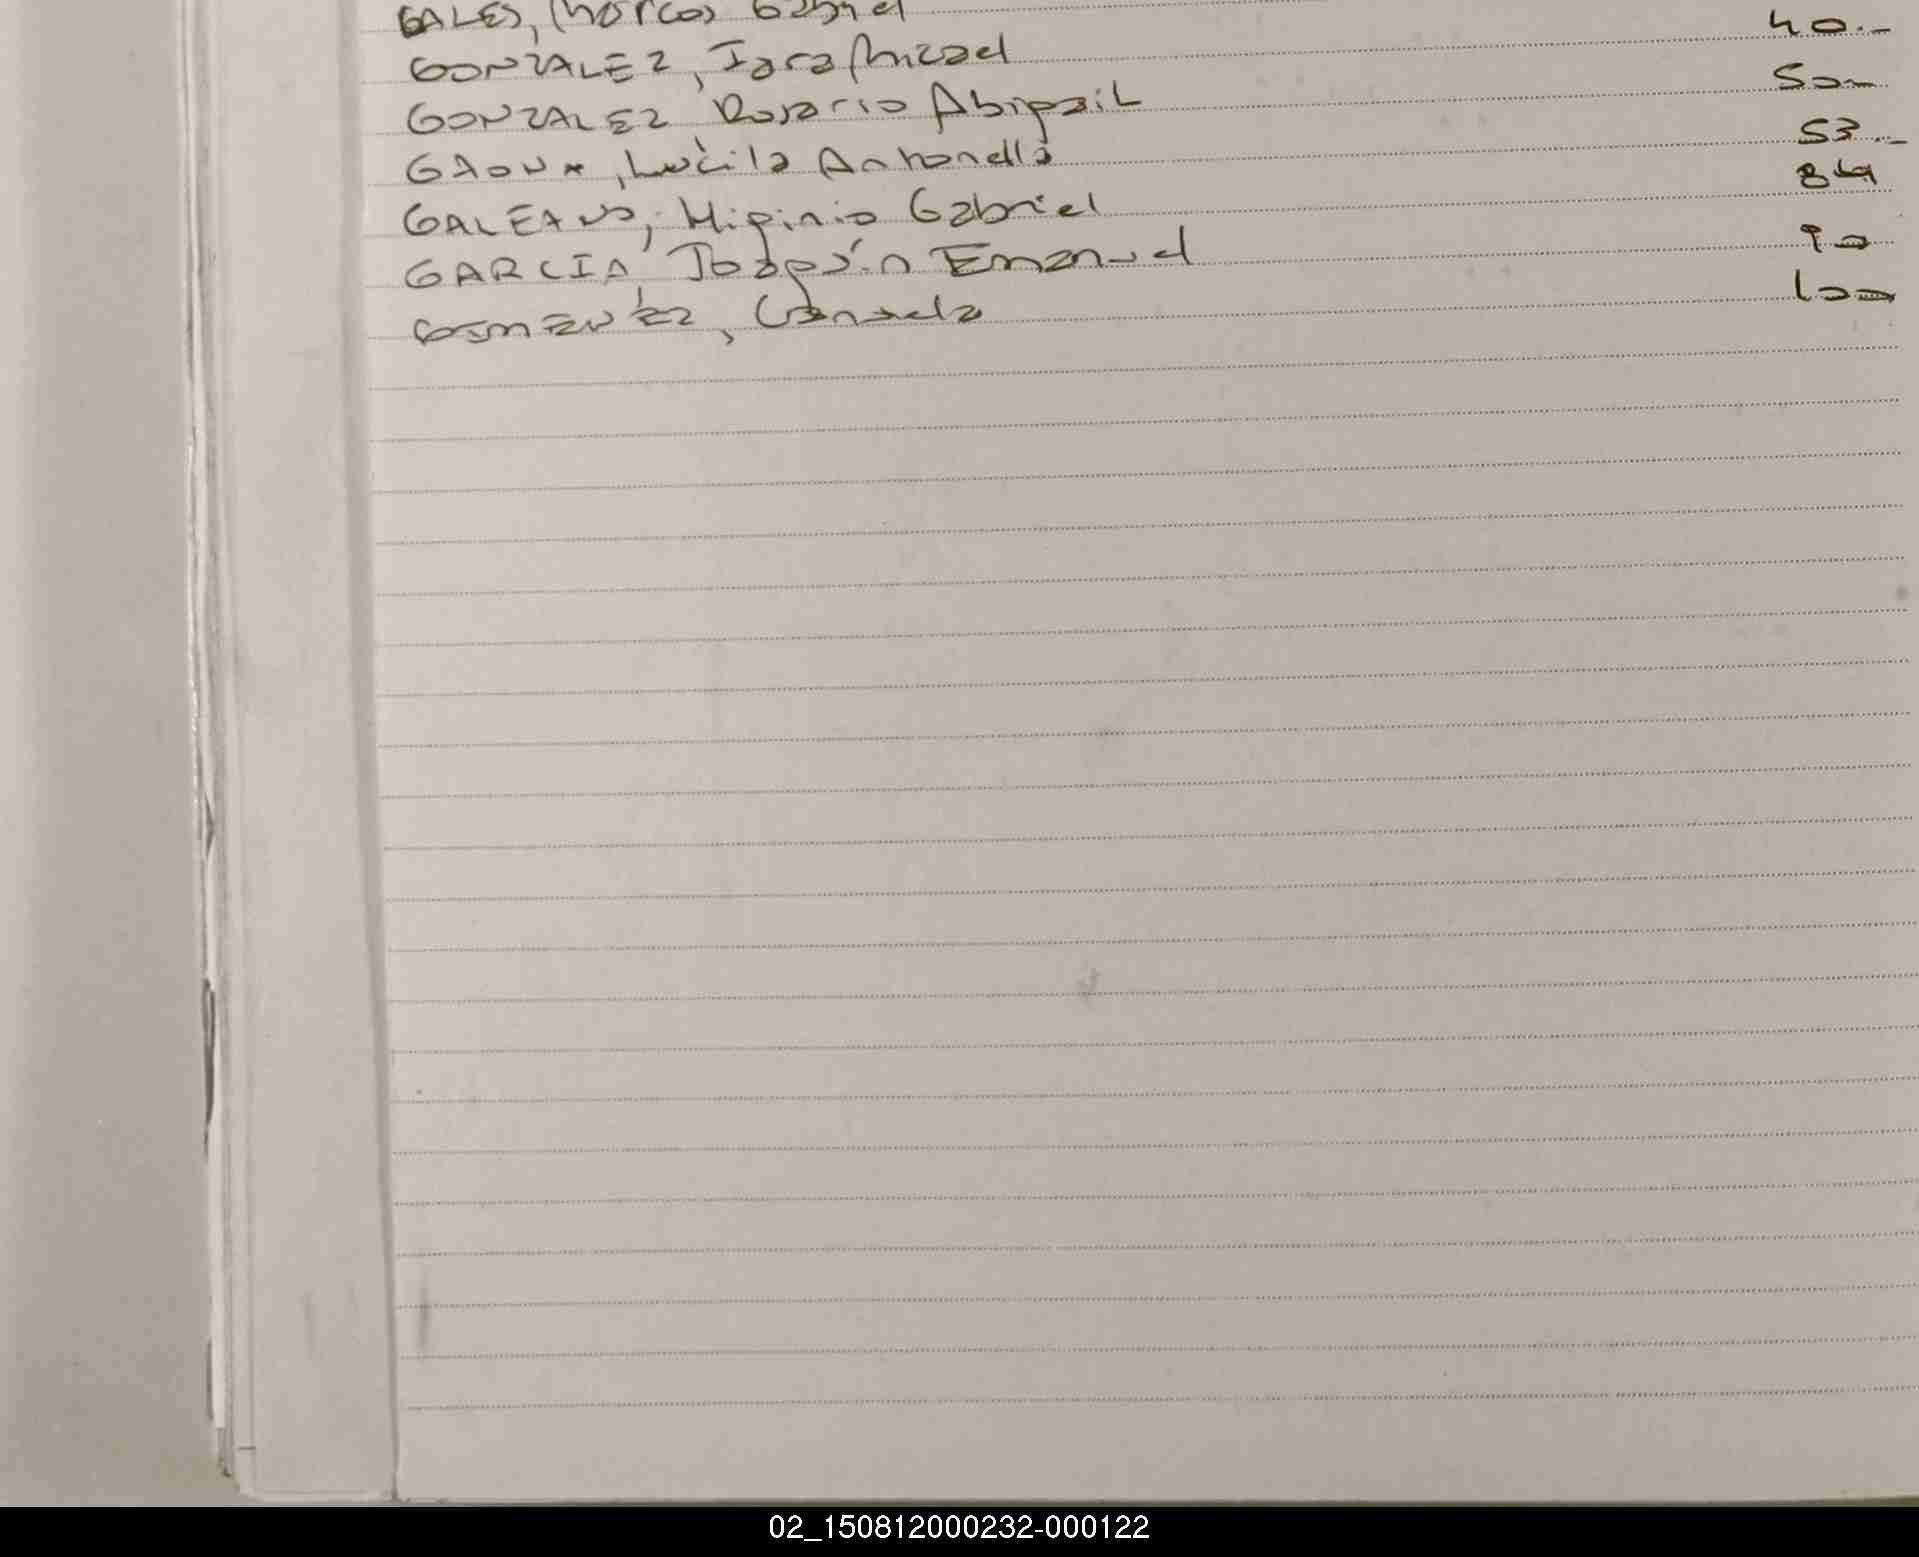 GALES, Marcos Gabriel
GONZALEZ, Iara Micael 40.-
GONZALEZ Rosario Abigail 50-
GAONA, Lucila Antonella 53.-
GALEANO, Higinio Gabriel 84
GARCIA, Joaquín Emanuel 90
GIMENEZ, 100
02_150812000232-000122